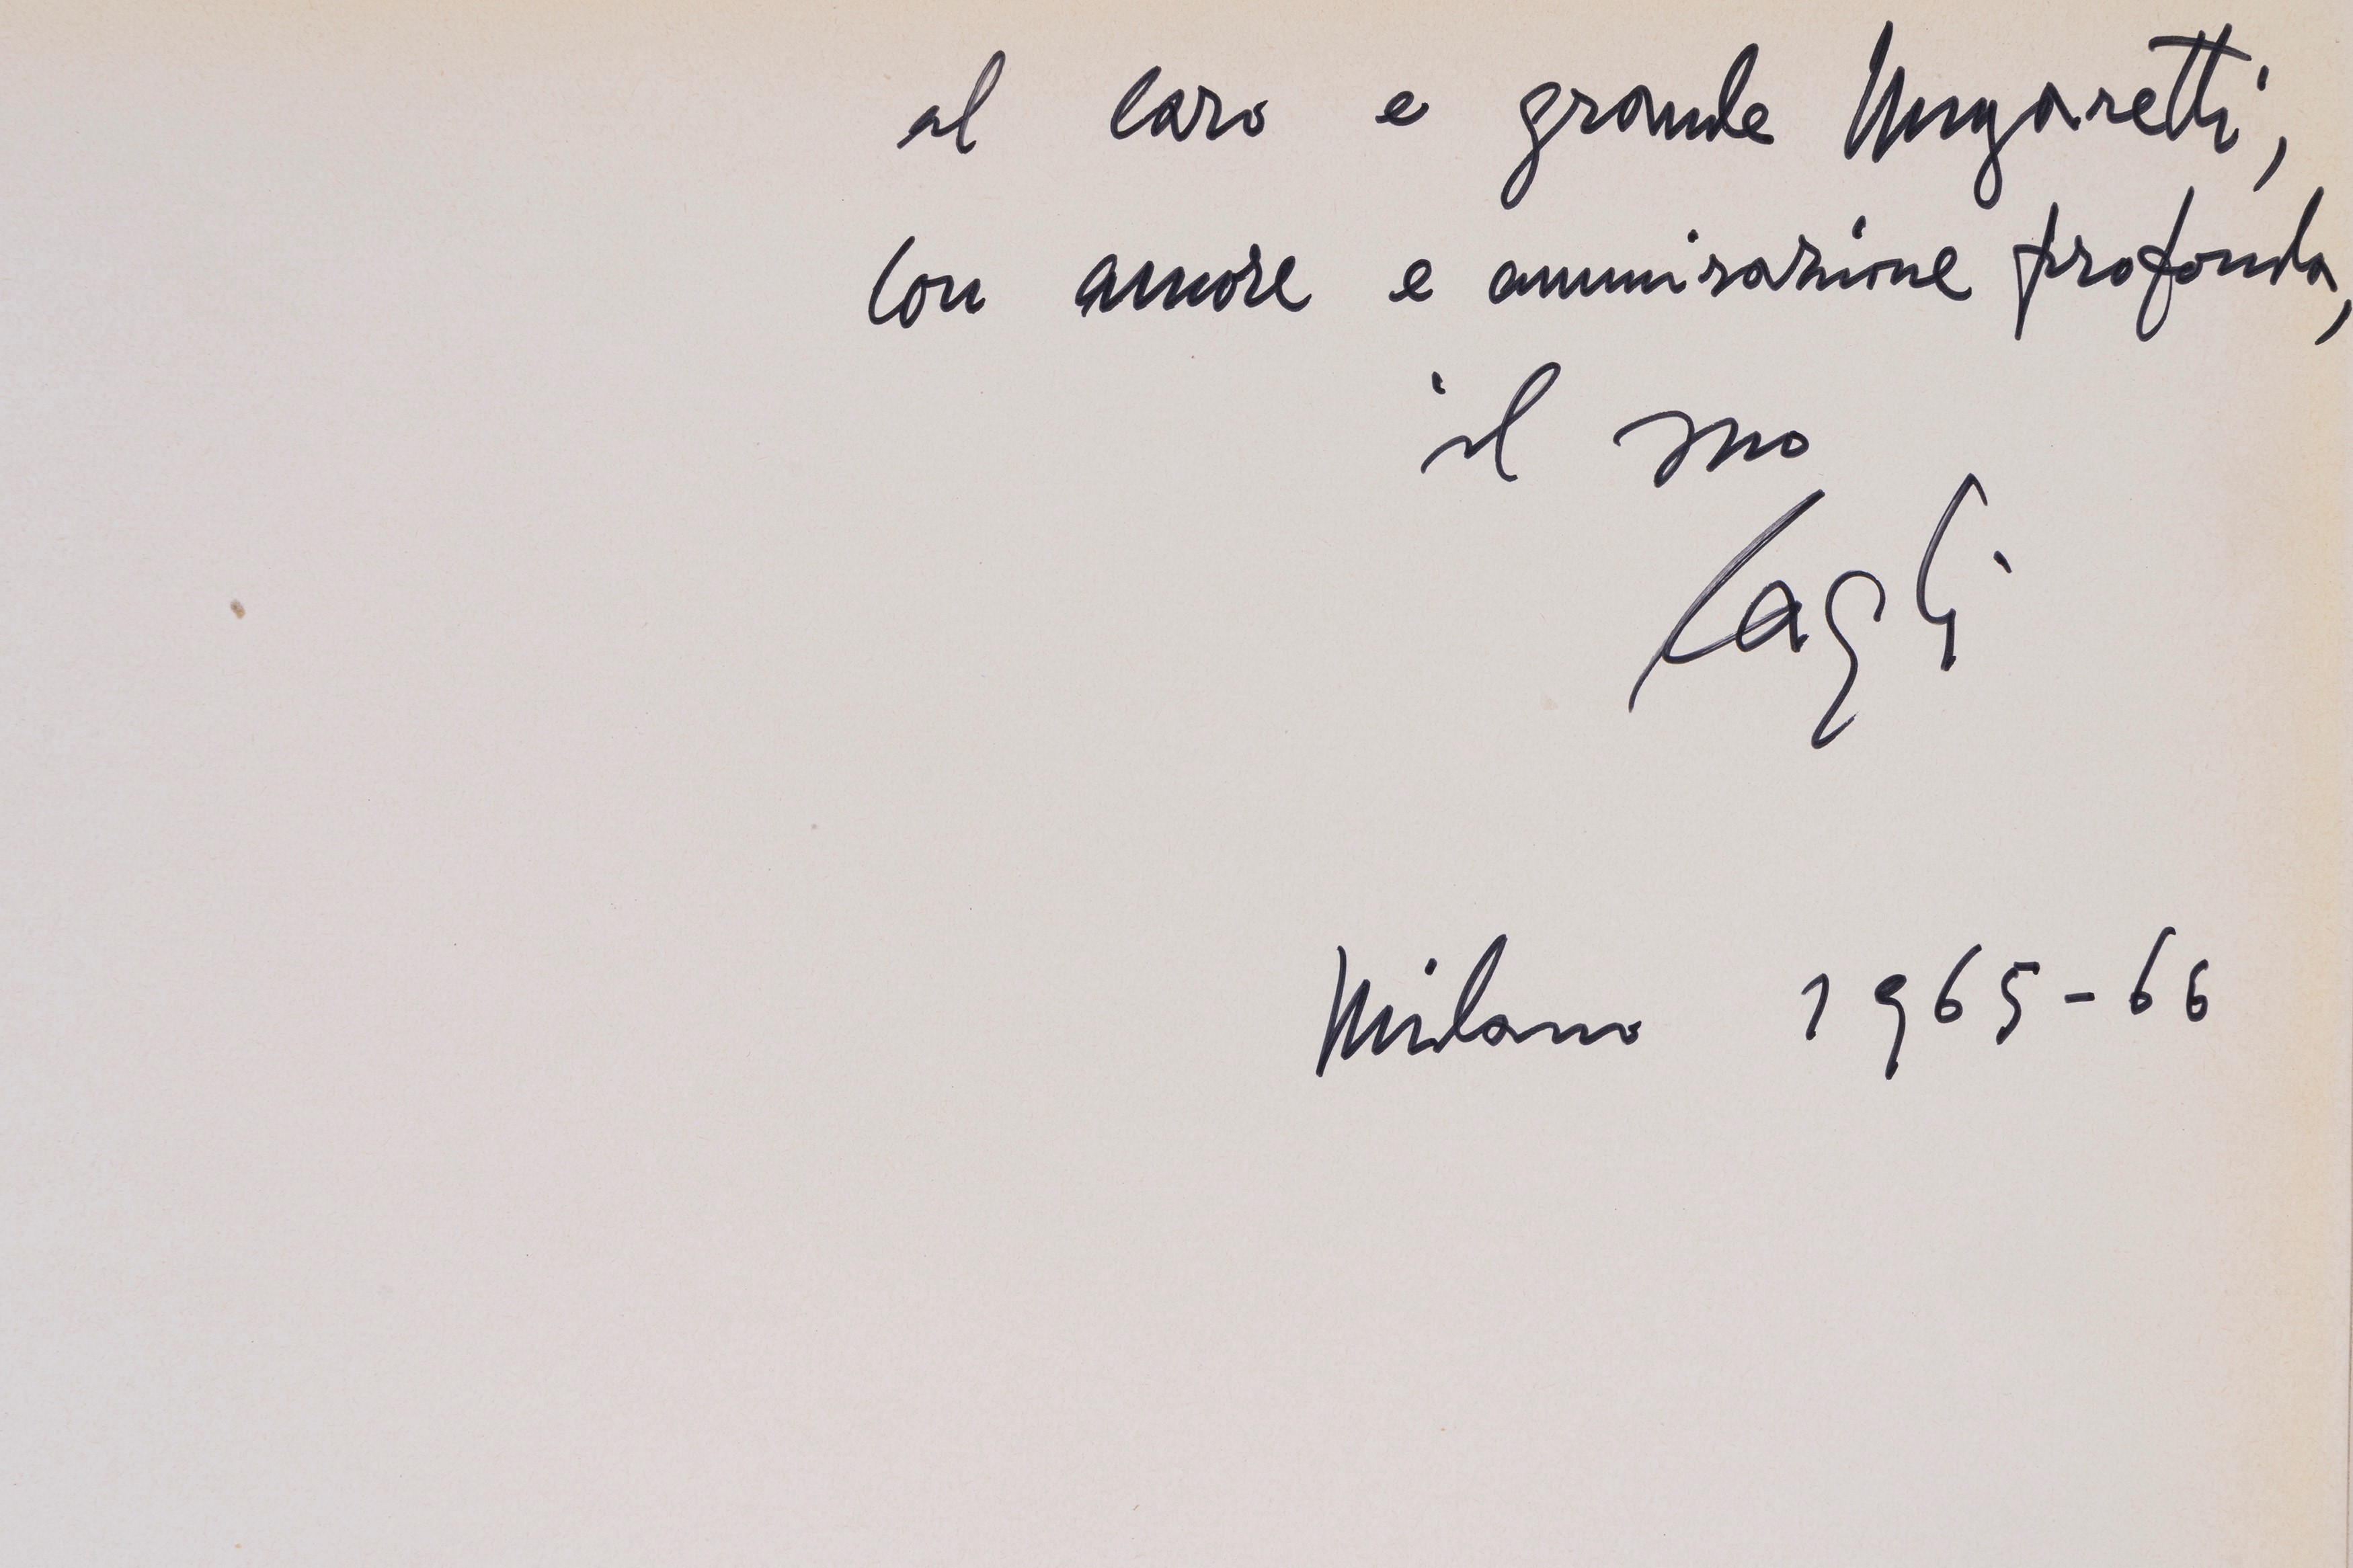 al caro e grande Ungaretti,
con amore e ammirazione profonda,
il suo
Cagli
Milano 1965-66